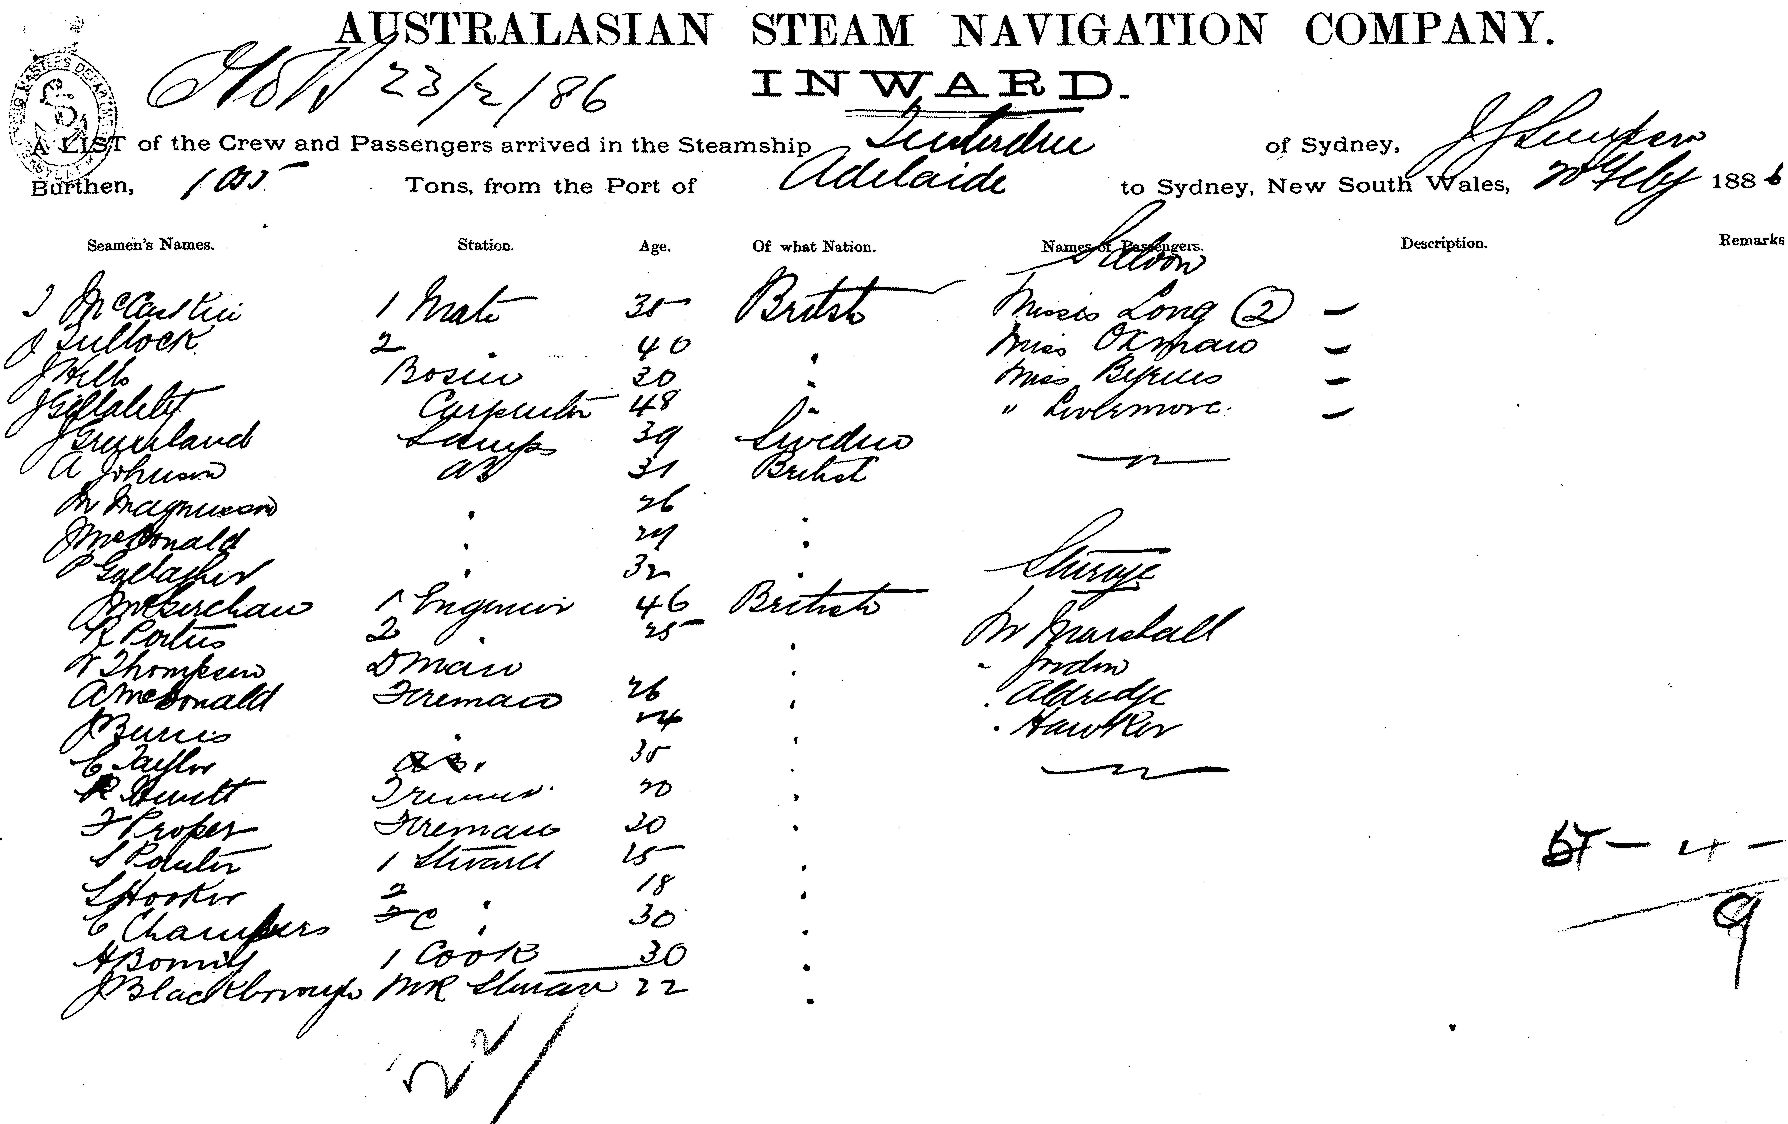 AUSTRALASIAN STEAM NAVIGATION COMPANY.
23/2/86 INWARD.
A LIST of the Crew and Passengers arrived in the Steamship Tenterden of Sydney,
Burthen, Tons, from the Port of Adelaide to Sydney, New South Wales, Feby 1886
Seamen's Names. Station. Age. Of what Nation. Names of Passengers. Description. Remarks
Saloon
1 Mate British Misses Long (2) –
J Tullock 2 " 40 " Miss Oxman –
J Hills Bosun 30 " Miss Byrnes –
Carpenter 48 " " Livermore –
J Greenland Lamps 39 Sweden
A Johnson AB 31 British
M Magnusson " 26 "
J McDonald " "
P Gallagher " 32 "
Steerage
1 Engineer 46 British
R Porteus 2 " 25 " Mr Marshall
W Thompson D Man " " Jordan
A McDonald Fireman 26 " " Aldredge
J Burns " 24 " " Hawker
C Taylor 35 "
R Hewitt Trimmer 20 "
F Proper Fireman 30 "
S Poulter 1 Steward 25 "
S Hooker 2 " 18 "
C Chambers F C " 30 "
H Bonny 1 Cook 30 "
J Blackbrough MR Steward 22 "
– 4 –
9
22